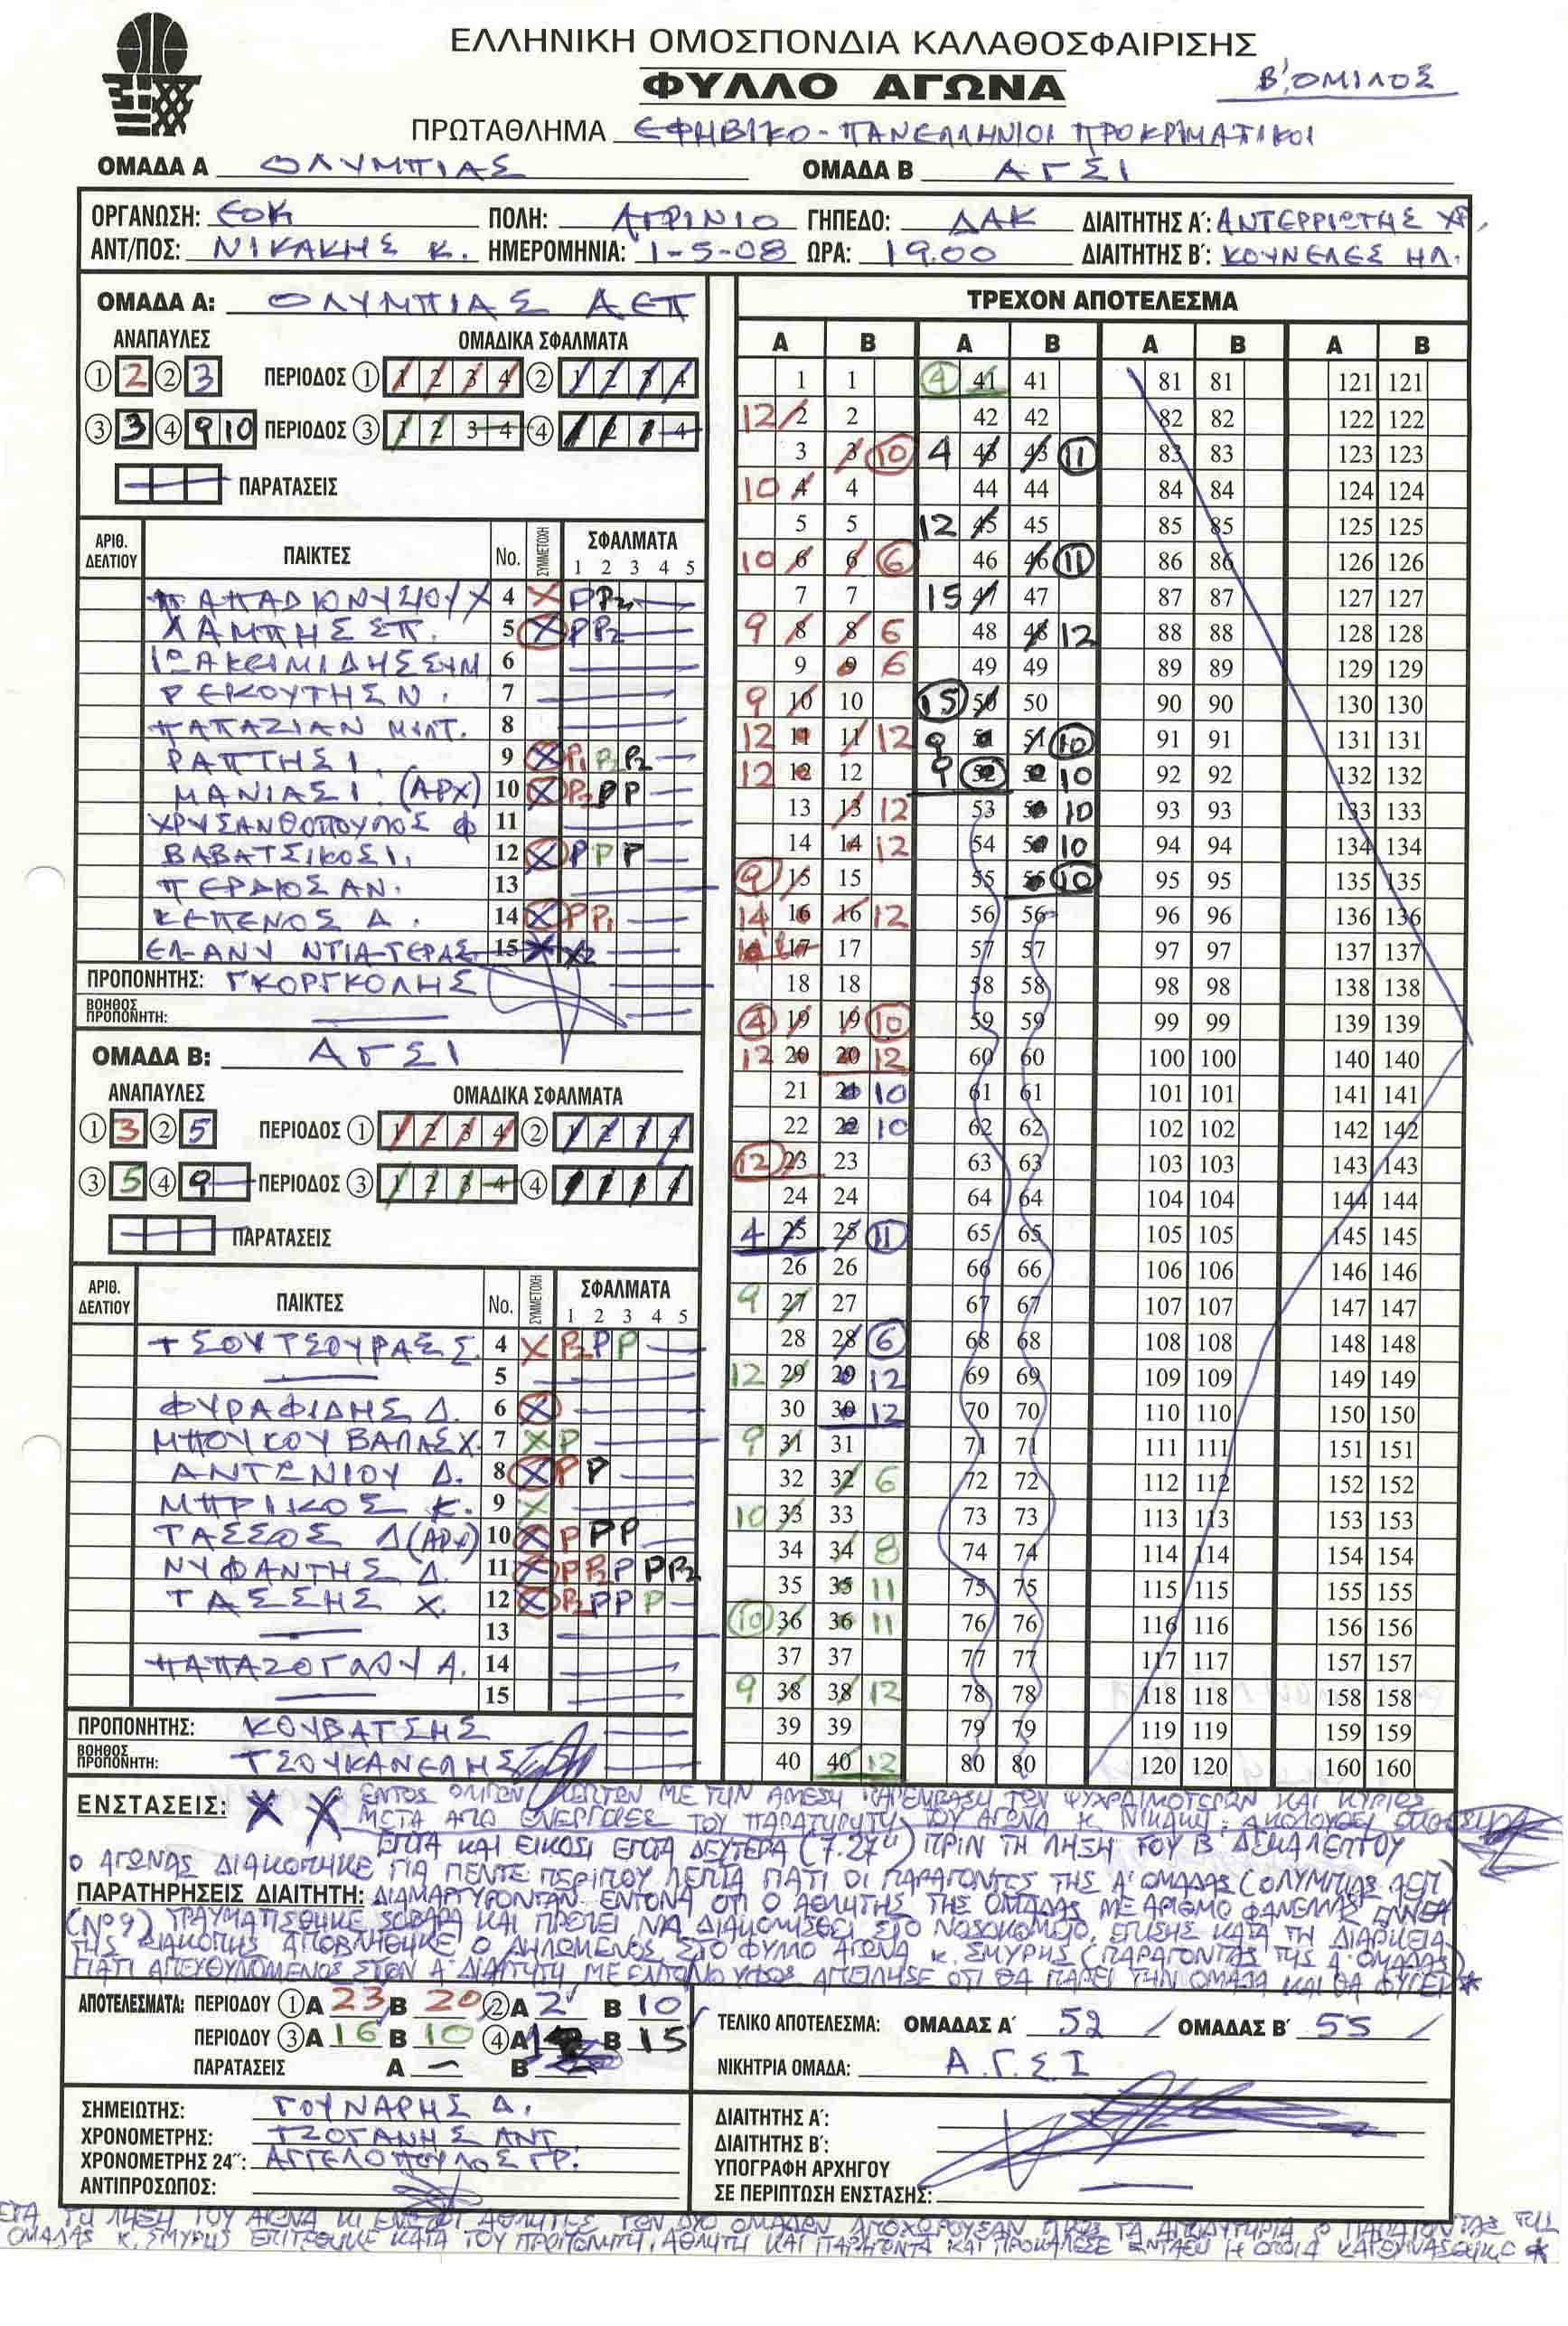 ΕΛΛΗΝΙΚΗ ΟΜΟΣΠΟΝΔΙΑ ΚΑΛΑΘΟΣΦΑΙΡΙΣΗΣ
ΦΥΛΛΟ ΑΓΩΝΑ
Β' ΟΜΙΛΟΣ
ΠΡΩΤΑΘΛΗΜΑ ΕΦΗΒΙΚΟ - ΠΑΝΕΛΛΗΝΙΟΙ ΠΡΟΚΡΙΜΑΤΙΚΟΙ
ΟΜΑΔΑ Α ΟΛΥΜΠΙΑΣ ΟΜΑΔΑ Β ΑΓΣΙ
ΟΡΓΑΝΩΣΗ: ΕΟΚ ΠΟΛΗ: ΑΓΡΙΝΙΟ ΓΗΠΕΔΟ: ΔΑΚ ΔΙΑΙΤΗΤΗΣ Α': ΑΝΤΕΡΡΙΩΤΗΣ
ΑΝΤ/ΠΟΣ: ΝΙΚΑΚΗΣ Κ. ΗΜΕΡΟΜΗΝΙΑ: 1-5-08 ΩΡΑ: 19.00 ΔΙΑΙΤΗΤΗΣ Β': ΚΟΥΝΕΛΕΣ ΗΛ.
ΟΜΑΔΑ Α: ΟΛΥΜΠΙΑΣ ΑΕΠ
ΑΝΑΠΑΥΛΕΣ ΟΜΑΔΙΚΑ ΣΦΑΛΜΑΤΑ
① 2 ② 3 ΠΕΡΙΟΔΟΣ ① 1 2 3 4 ② 1 2 3 4
③ 3 ④ 9 10 ΠΕΡΙΟΔΟΣ ③ 1 2 3 4 ④ 1 2 3 4
ΠΑΡΑΤΑΣΕΙΣ
ΑΡΙΘ. ΔΕΛΤΙΟΥ ΠΑΙΚΤΕΣ No. ΣΥΜΜΕΤΟΧΗ ΣΦΑΛΜΑΤΑ 1 2 3 4 5
ΠΑΠΑΔΙΟΝΥΣΙΟΥ Χ 4 X P P2
ΛΑΜΠΗΣ ΣΠ. 5 X P P2
ΙΩΑΚΕΙΜΙΔΗΣ ΣΥΜ 6
ΡΕΚΟΥΤΗΣ Ν. 7
ΠΑΠΑΖΙΑΝ ΜΙΛΤ. 8
ΡΑΠΤΗΣ Ι. 9 X P1 P2 P2
ΜΑΝΙΑΣ Ι. (ΑΡΧ) 10 X P2 P P
ΧΡΥΣΑΝΘΟΠΟΥΛΟΣ Φ 11
ΒΑΒΑΤΣΙΚΟΣ Ι. 12 X P P P
ΠΕΡΔΙΟΣ ΑΝ. 13
ΚΕΠΕΝΟΣ Δ. 14 X P P1
ΕΛ-ΑΝΥ ΝΤΙΑ-ΤΕΡΑΣ 15 X
ΠΡΟΠΟΝΗΤΗΣ: ΓΚΟΡΓΚΟΛΗΣ
ΒΟΗΘΟΣ ΠΡΟΠΟΝΗΤΗ:
ΟΜΑΔΑ Β: ΑΓΣΙ
ΑΝΑΠΑΥΛΕΣ ΟΜΑΔΙΚΑ ΣΦΑΛΜΑΤΑ
① 3 ② 5 ΠΕΡΙΟΔΟΣ ① 1 2 3 4 ② 1 2 3 4
③ 5 ④ 9 ΠΕΡΙΟΔΟΣ ③ 1 2 3 4 ④ 1 2 3 4
ΠΑΡΑΤΑΣΕΙΣ
ΑΡΙΘ. ΔΕΛΤΙΟΥ ΠΑΙΚΤΕΣ No. ΣΥΜΜΕΤΟΧΗ ΣΦΑΛΜΑΤΑ 1 2 3 4 5
ΤΣΟΥΤΣΟΥΡΑΣ Σ. 4 X P2 P P
5
ΦΥΡΑΦΙΔΗΣ Δ. 6 X
ΜΠΟΥΚΟΥΒΑΛΑΣ Χ. 7 X P
ΑΝΤΩΝΙΟΥ Δ. 8 X P P
ΜΠΡΙΚΟΣ Κ. 9 X
ΤΑΣΣΟΣ Δ (ΑΡΧ) 10 X P P P
ΝΥΦΑΝΤΗΣ Δ. 11 X P P2 P P P2
ΤΑΣΣΗΣ Χ. 12 X P2 P P P
13
ΠΑΠΑΖΟΓΛΟΥ Α. 14
15
ΠΡΟΠΟΝΗΤΗΣ: ΚΟΥΒΑΤΣΗΣ
ΒΟΗΘΟΣ ΠΡΟΠΟΝΗΤΗ: ΤΣΟΥΚΑΝΕΛΗΣ
ΤΡΕΧΟΝ ΑΠΟΤΕΛΕΣΜΑ
Α Β Α Β Α Β Α Β
1 1 ④ 41 41 81 81 121 121
12 2 2 42 42 82 82 122 122
3 3 ⑩ 4 43 43 ⑪ 83 83 123 123
10 4 4 44 44 84 84 124 124
5 5 12 45 45 85 85 125 125
10 6 6 ⑥ 46 46 ⑪ 86 86 126 126
7 7 15 47 47 87 87 127 127
9 8 8 6 48 48 12 88 88 128 128
9 9 6 49 49 89 89 129 129
9 10 10 ⑮ 50 50 90 90 130 130
12 11 11 12 9 51 51 ⑩ 91 91 131 131
12 12 12 9 52 52 10 92 92 132 132
13 13 12 53 53 10 93 93 133 133
14 14 12 54 54 10 94 94 134 134
⑨ 15 15 55 55 ⑩ 95 95 135 135
14 16 16 12 56 56 96 96 136 136
14 17 17 57 57 97 97 137 137
18 18 58 58 98 98 138 138
④ 19 19 ⑩ 59 59 99 99 139 139
12 20 20 12 60 60 100 100 140 140
21 21 10 61 61 101 101 141 141
22 22 10 62 62 102 102 142 142
⑫ 23 23 63 63 103 103 143 143
24 24 64 64 104 104 144 144
4 25 25 ⑪ 65 65 105 105 145 145
26 26 66 66 106 106 146 146
9 27 27 67 67 107 107 147 147
28 28 ⑥ 68 68 108 108 148 148
12 29 29 12 69 69 109 109 149 149
30 30 12 70 70 110 110 150 150
9 31 31 71 71 111 111 151 151
32 32 6 72 72 112 112 152 152
10 33 33 73 73 113 113 153 153
34 34 8 74 74 114 114 154 154
35 35 11 75 75 115 115 155 155
⑩ 36 36 11 76 76 116 116 156 156
37 37 77 77 117 117 157 157
9 38 38 12 78 78 118 118 158 158
39 39 79 79 119 119 159 159
40 40 12 80 80 120 120 160 160
ΕΝΤΟΣ ΟΛΙΓΩΝ ΛΕΠΤΩΝ ΜΕ ΤΗΝ ΑΜΕΣΗ ΠΑΡΕΜΒΑΣΗ ΤΩΝ ΨΥΧΡΑΙΜΟΤΕΡΩΝ ΚΑΙ ΚΥΡΙΩΣ
ΕΝΣΤΑΣΕΙΣ: ΜΕΤΑ ΑΠΟ ΕΝΕΡΓΕΙΕΣ ΤΟΥ ΠΑΡΑΤΗΡΗΤΗ ΤΟΥ ΑΓΩΝΑ Κ. ΝΙΚΑΚΗ. ΑΚΟΛΟΥΘΕΙ
ΕΠΤΑ ΚΑΙ ΕΙΚΟΣΙ ΕΠΤΑ ΔΕΥΤΕΡΑ (7.27") ΠΡΙΝ ΤΗ ΛΗΞΗ ΤΟΥ Β ΔΕΚΑΛΕΠΤΟΥ
Ο ΑΓΩΝΑΣ ΔΙΑΚΟΠΗΚΕ ΓΙΑ ΠΕΝΤΕ ΠΕΡΙΠΟΥ ΛΕΠΤΑ ΓΙΑΤΙ ΟΙ ΠΑΡΑΓΟΝΤΕΣ ΤΗΣ Α' ΟΜΑΔΑΣ (ΟΛΥΜΠΙΑΣ ΑΕΠ)
ΠΑΡΑΤΗΡΗΣΕΙΣ ΔΙΑΙΤΗΤΗ: ΔΙΑΜΑΡΤΥΡΟΝΤΑΝ ΕΝΤΟΝΑ ΟΤΙ Ο ΑΘΛΗΤΗΣ ΤΗΣ ΟΜΑΔΑΣ ΜΕ ΑΡΙΘΜΟ ΦΑΝΕΛΛΑΣ ΕΝΝΕΑ
(Νο 9) ΤΡΑΥΜΑΤΙΣΘΗΚΕ ΣΟΒΑΡΑ ΚΑΙ ΠΡΕΠΕΙ ΝΑ ΔΙΑΚΟΜΙΣΘΕΙ ΣΤΟ ΝΟΣΟΚΟΜΕΙΟ. ΕΠΙΣΗΣ ΚΑΤΑ ΤΗ ΔΙΑΡΚΕΙΑ
ΤΗΣ ΔΙΑΚΟΠΗΣ ΑΠΟΒΛΗΘΗΚΕ Ο ΔΗΛΩΜΕΝΟΣ ΣΤΟ ΦΥΛΛΟ ΑΓΩΝΑ Κ. ΣΜΥΡΗΣ (ΠΑΡΑΓΟΝΤΑΣ ΤΗΣ Α' ΟΜΑΔΑΣ)
ΓΙΑΤΙ ΑΠΕΥΘΥΝΟΜΕΝΟΣ ΣΤΟΝ Α' ΔΙΑΙΤΗΤΗ ΜΕ ΕΝΤΟΝΟ ΥΦΟΣ ΑΠΕΙΛΗΣΕ ΟΤΙ ΘΑ ΠΑΡΕΙ ΤΗΝ ΟΜΑΔΑ ΚΑΙ ΘΑ ΦΥΓΕΙ
ΑΠΟΤΕΛΕΣΜΑΤΑ: ΠΕΡΙΟΔΟΥ ① Α 23 Β 20 ② Α 2 Β 10
ΠΕΡΙΟΔΟΥ ③ Α 16 Β 10 ④ Α Β 15
ΠΑΡΑΤΑΣΕΙΣ Α — Β
ΤΕΛΙΚΟ ΑΠΟΤΕΛΕΣΜΑ: ΟΜΑΔΑΣ Α' 52 ΟΜΑΔΑΣ Β' 55
ΝΙΚΗΤΡΙΑ ΟΜΑΔΑ: Α.Γ.Σ.Ι
ΣΗΜΕΙΩΤΗΣ: ΓΟΥΝΑΡΗΣ Δ.
ΧΡΟΝΟΜΕΤΡΗΣ: ΤΖΟΓΑΝΗΣ ΑΝΤ
ΧΡΟΝΟΜΕΤΡΗΣ 24": ΑΓΓΕΛΟΠΟΥΛΟΣ ΓΡ.
ΑΝΤΙΠΡΟΣΩΠΟΣ:
ΔΙΑΙΤΗΤΗΣ Α':
ΔΙΑΙΤΗΤΗΣ Β':
ΥΠΟΓΡΑΦΗ ΑΡΧΗΓΟΥ
ΣΕ ΠΕΡΙΠΤΩΣΗ ΕΝΣΤΑΣΗΣ:
ΤΗ ΛΗΞΗ ΤΟΥ ΑΓΩΝΑ ΚΙ ΕΝΩ ΟΙ ΑΘΛΗΤΕΣ ΤΩΝ ΔΥΟ ΟΜΑΔΩΝ ΑΠΟΧΩΡΟΥΣΑΝ ΠΡΟΣ ΤΑ ΑΠΟΔΥΤΗΡΙΑ Ο ΠΑΡΑΓΟΝΤΑΣ ΤΗΣ
ΟΜΑΔΑΣ Κ. ΣΜΥΡΗΣ ΕΠΙΤΕΘΗΚΕ ΚΑΤΑ ΤΟΥ ΠΡΟΠΟΝΗΤΗ, ΑΘΛΗΤΗ ΚΑΙ ΠΑΡΑΓΟΝΤΑ ΚΑΙ ΠΡΟΚΑΛΕΣΕ ΕΝΤΑΣΗ Η ΟΠΟΙΑ